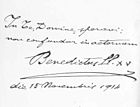 In Te, Domine, speravi;
non confundar in aeternum
Benedictus PP. XV
die 15 Novembris 1914